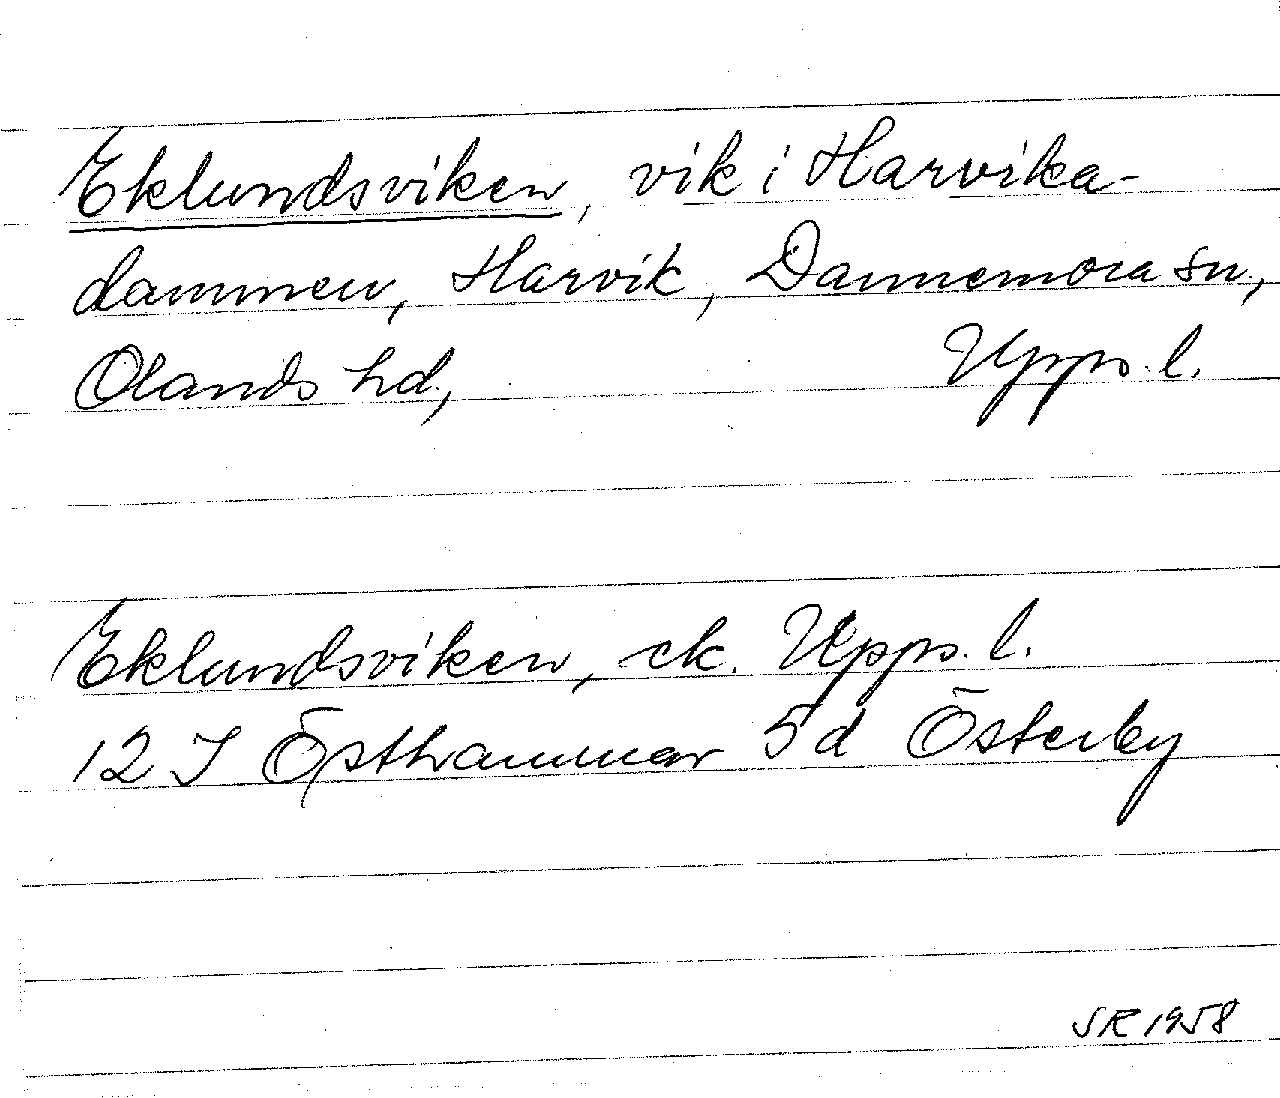 Eklundsviken, vik i Harvika-
dammen, Harvik, Dannemora sn,
Olands hd, Upps. l.
Eklundsviken, ek. Upps. l.
12 I Östhammar 5 d Österby
SR 1958